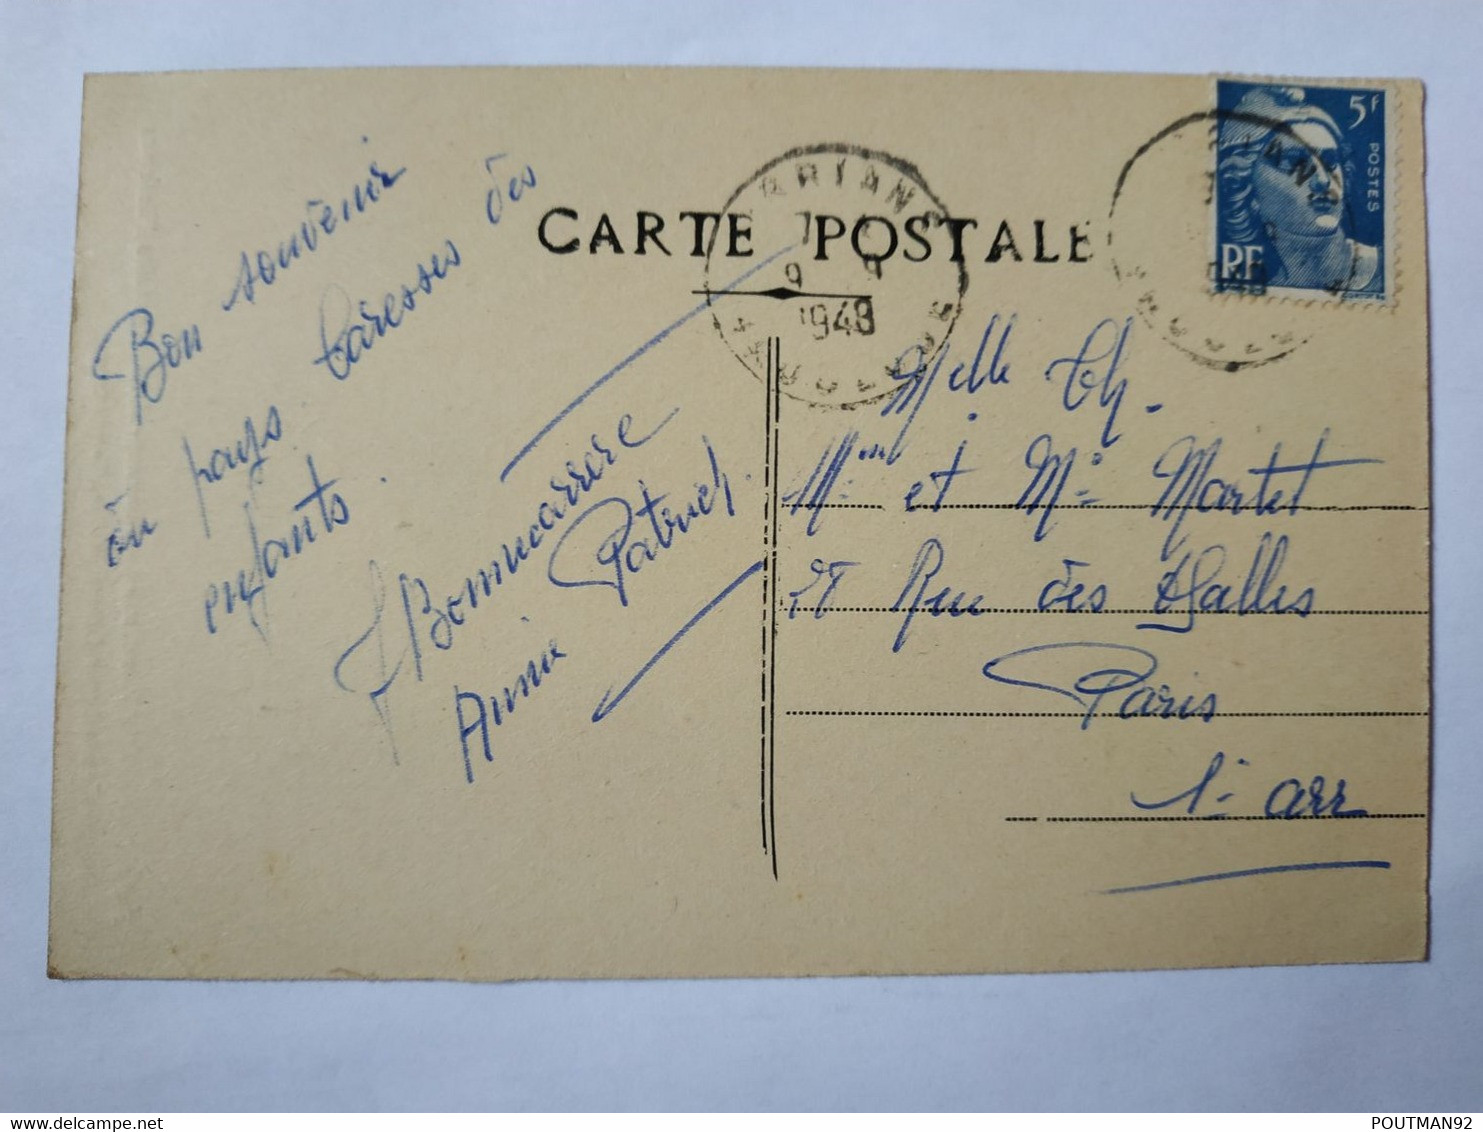 CARTE POSTALE
5F
POSTES
RF
9 9
1948
Bon souvenir
du pays. Caresses des
enfants.
Bonnecarrere
Annie Patrick.
Melle Th.
Mme et Mr Martet
28 Rue des Halles
Paris
1er arr
POUTMAN92